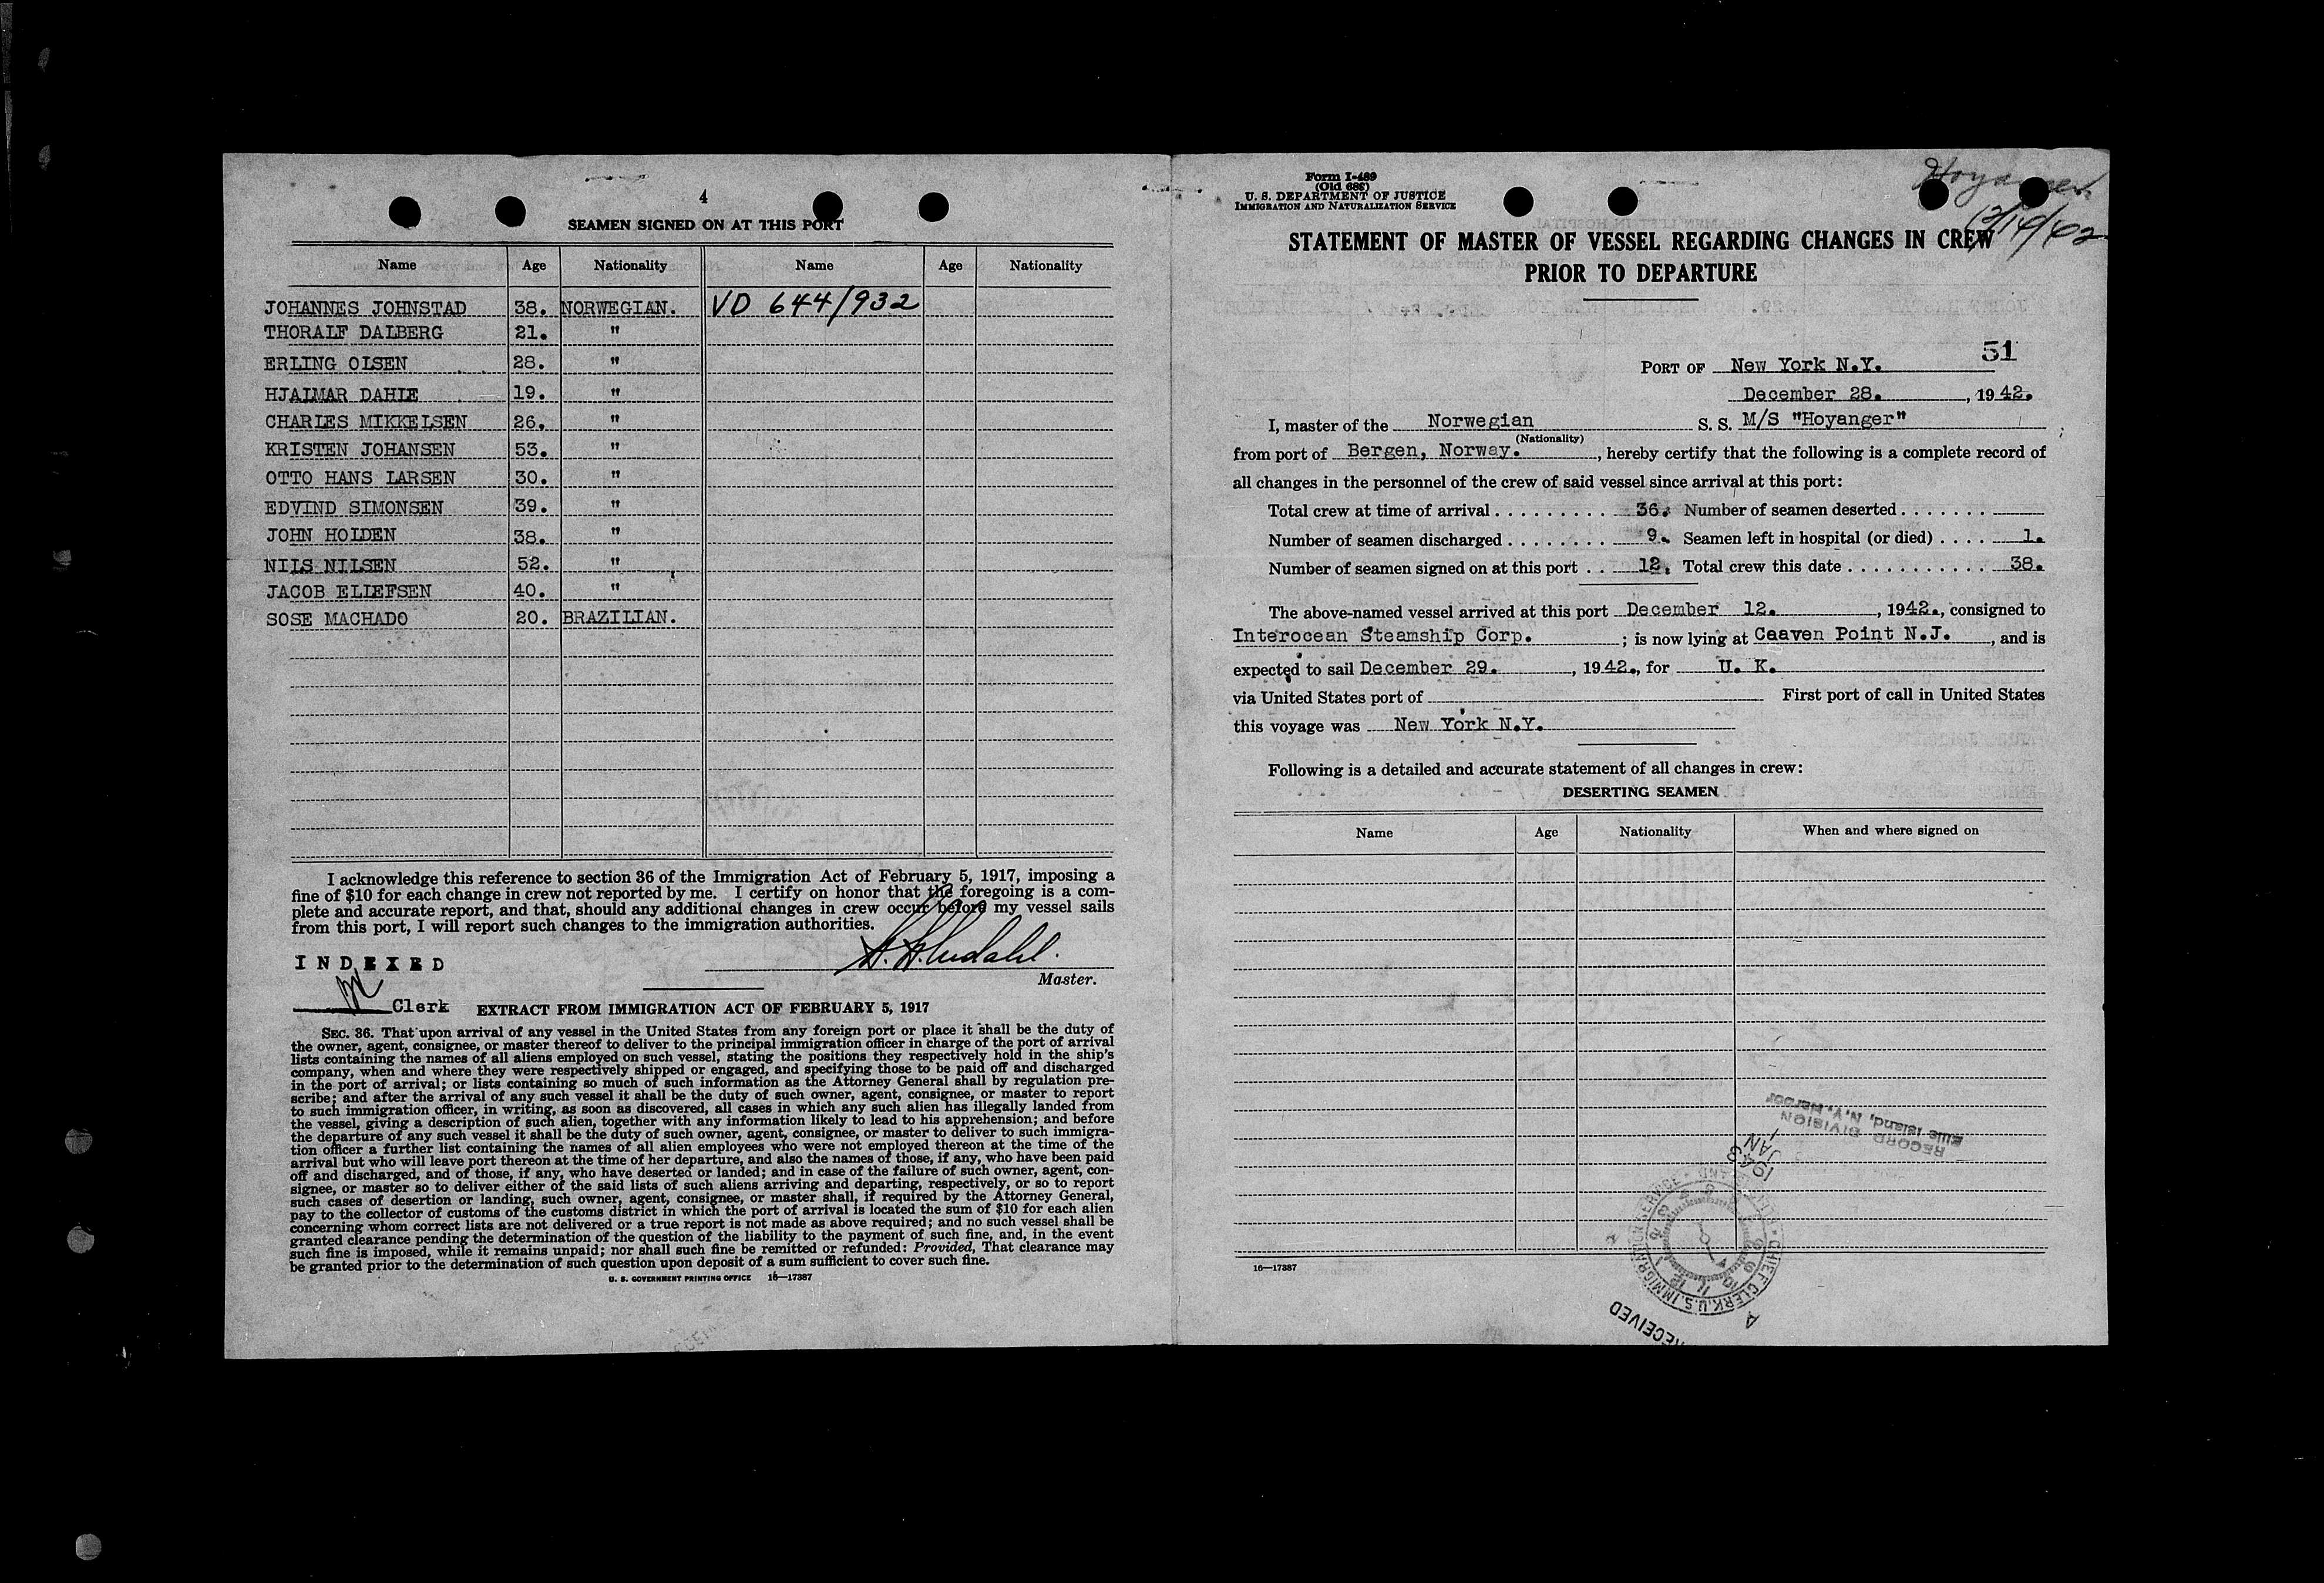 4
SEAMEN SIGNED ON AT THIS PORT
Name Age Nationality Name Age Nationality
JOHANNES JOHNSTAD 38. NORWEGIAN. VD 644/932
THORALF DALBERG 21. "
ERLING OLSEN 28. "
HJALMAR DAHLE 19. "
CHARLES MIKKELSEN 26. "
KRISTEN JOHANSEN 53. "
OTTO HANS LARSEN 30. "
EDVIND SIMONSEN 39. "
JOHN HOLDEN 38. "
NILS NILSEN 52. "
JACOB ELLEFSEN 40. "
SOSE MACHADO 20. BRAZILIAN.
I acknowledge this reference to section 36 of the Immigration Act of February 5, 1917, imposing a
fine of $10 for each change in crew not reported by me. I certify on honor that the foregoing is a com-
plete and accurate report, and that, should any additional changes in crew occur before my vessel sails
from this port, I will report such changes to the immigration authorities.
INDEXED
Master.
Clerk EXTRACT FROM IMMIGRATION ACT OF FEBRUARY 5, 1917
SEC. 36. That upon arrival of any vessel in the United States from any foreign port or place it shall be the duty of
the owner, agent, consignee, or master thereof to deliver to the principal immigration officer in charge of the port of arrival
lists containing the names of all aliens employed on such vessel, stating the positions they respectively hold in the ship's
company, when and where they were respectively shipped or engaged, and specifying those to be paid off and discharged
in the port of arrival; or lists containing so much of such information as the Attorney General shall by regulation pre-
scribe; and after the arrival of any such vessel it shall be the duty of such owner, agent, consignee, or master to report
to such immigration officer, in writing, as soon as discovered, all cases in which any such alien has illegally landed from
the vessel, giving a description of such alien, together with any information likely to lead to his apprehension; and before
the departure of any such vessel it shall be the duty of such owner, agent, consignee, or master to deliver to such immigra-
tion officer a further list containing the names of all alien employees who were not employed thereon at the time of the
arrival but who will leave port thereon at the time of her departure, and also the names of those, if any, who have been paid
off and discharged, and of those, if any, who have deserted or landed; and in case of the failure of such owner, agent, con-
signee, or master so to deliver either of the said lists of such aliens arriving and departing, respectively, or so to report
such cases of desertion or landing, such owner, agent, consignee, or master shall, if required by the Attorney General,
pay to the collector of customs of the customs district in which the port of arrival is located the sum of $10 for each alien
concerning whom correct lists are not delivered or a true report is not made as above required; and no such vessel shall be
granted clearance pending the determination of the question of the liability to the payment of such fine, and, in the event
such fine is imposed, while it remains unpaid; nor shall such fine be remitted or refunded: Provided, That clearance may
be granted prior to the determination of such question upon deposit of a sum sufficient to cover such fine.
U. S. GOVERNMENT PRINTING OFFICE 16—17387
Form I-489
(Old 689)
U. S. DEPARTMENT OF JUSTICE
IMMIGRATION AND NATURALIZATION SERVICE
Hoyanger
STATEMENT OF MASTER OF VESSEL REGARDING CHANGES IN CREW
PRIOR TO DEPARTURE
51
PORT OF New York N.Y.
December 28. , 1942.
I, master of the Norwegian S. S. M/S "Hoyanger"
(Nationality)
from port of Bergen, Norway. , hereby certify that the following is a complete record of
all changes in the personnel of the crew of said vessel since arrival at this port:
Total crew at time of arrival . . . . . . . . . 36. Number of seamen deserted . . . . . . .
Number of seamen discharged . . . . . . . . 9. Seamen left in hospital (or died) . . . . 1.
Number of seamen signed on at this port . . 12. Total crew this date . . . . . . . . . . . 38.
The above-named vessel arrived at this port December 12. , 1942., consigned to
Interocean Steamship Corp. ; is now lying at Caaven Point N.J. , and is
expected to sail December 29. , 1942., for U. K.
via United States port of First port of call in United States
this voyage was New York N.Y.
Following is a detailed and accurate statement of all changes in crew:
DESERTING SEAMEN
Name Age Nationality When and where signed on
RECORD DIVISION
Ellis Island, N.Y. Harbor
JAN
1943
CHIEF CLERK U.S. IMMIGRATION SERVICE
RECEIVED
16—17387